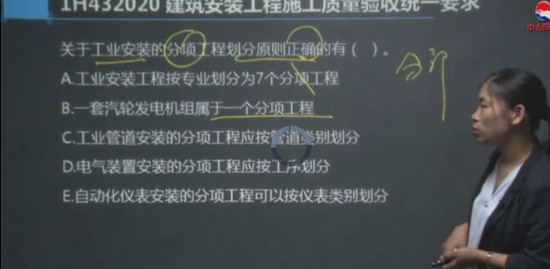 1H432020 建筑安装工程施工质量验收统一要求
关于工业安装的分项工程划分原则正确的有（ ）。
A.工业安装工程按专业划分为7个分项工程
B.一套汽轮发电机组属于一个分项工程
C.工业管道安装的分项工程应按管道类别划分
D.电气装置安装的分项工程应按工序划分
E.自动化仪表安装的分项工程可以按仪表类别划分
分部